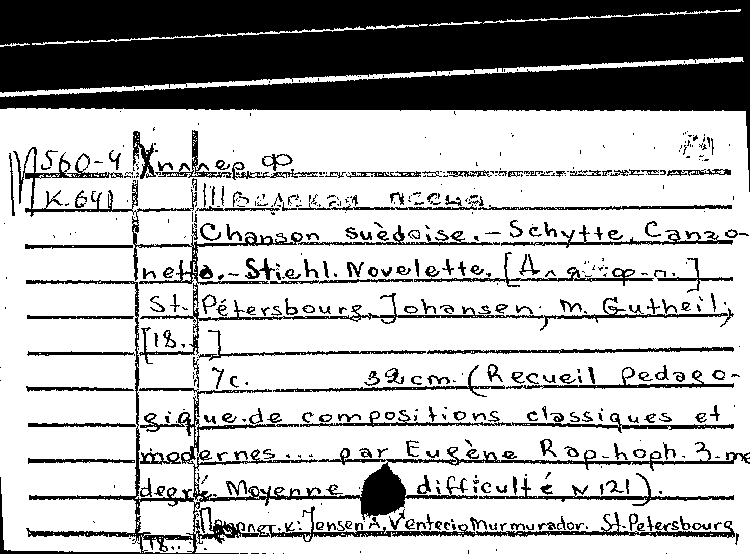 М 560-4 Хиллер, Ф
К.641 Шведская песня.
Chanson suèdoise. - Schytte. Canzo-
netta. - Stiehl. Novelette. [Для ф-п.]
St. Pétersbourg, Johansen; M, Gutheil;
[18..]
7с. 32 cm. (Recueil pedago-
gique de compositions classiques et
modernes... par Eugène Rap-hoph. 3-me
degré. Moyenne difficulté. N 121).
Jensen A. Ventecio Murmurador. St. Petersbourg,
[18..].